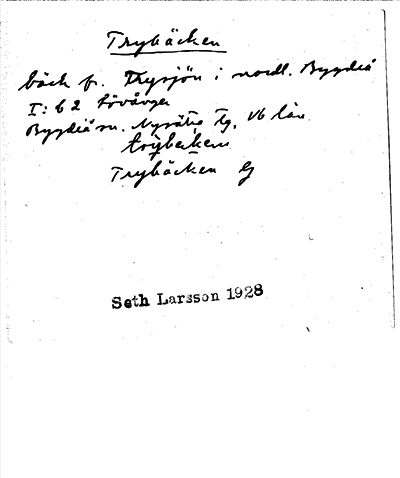 Trybäcken
bäck fr. Trysjön i nordl. Bygdeå
I: 62 Lövånger
Bygdeå sn. Nysätra tg, Vb län
Trybäcken G
Seth Larsson 1928